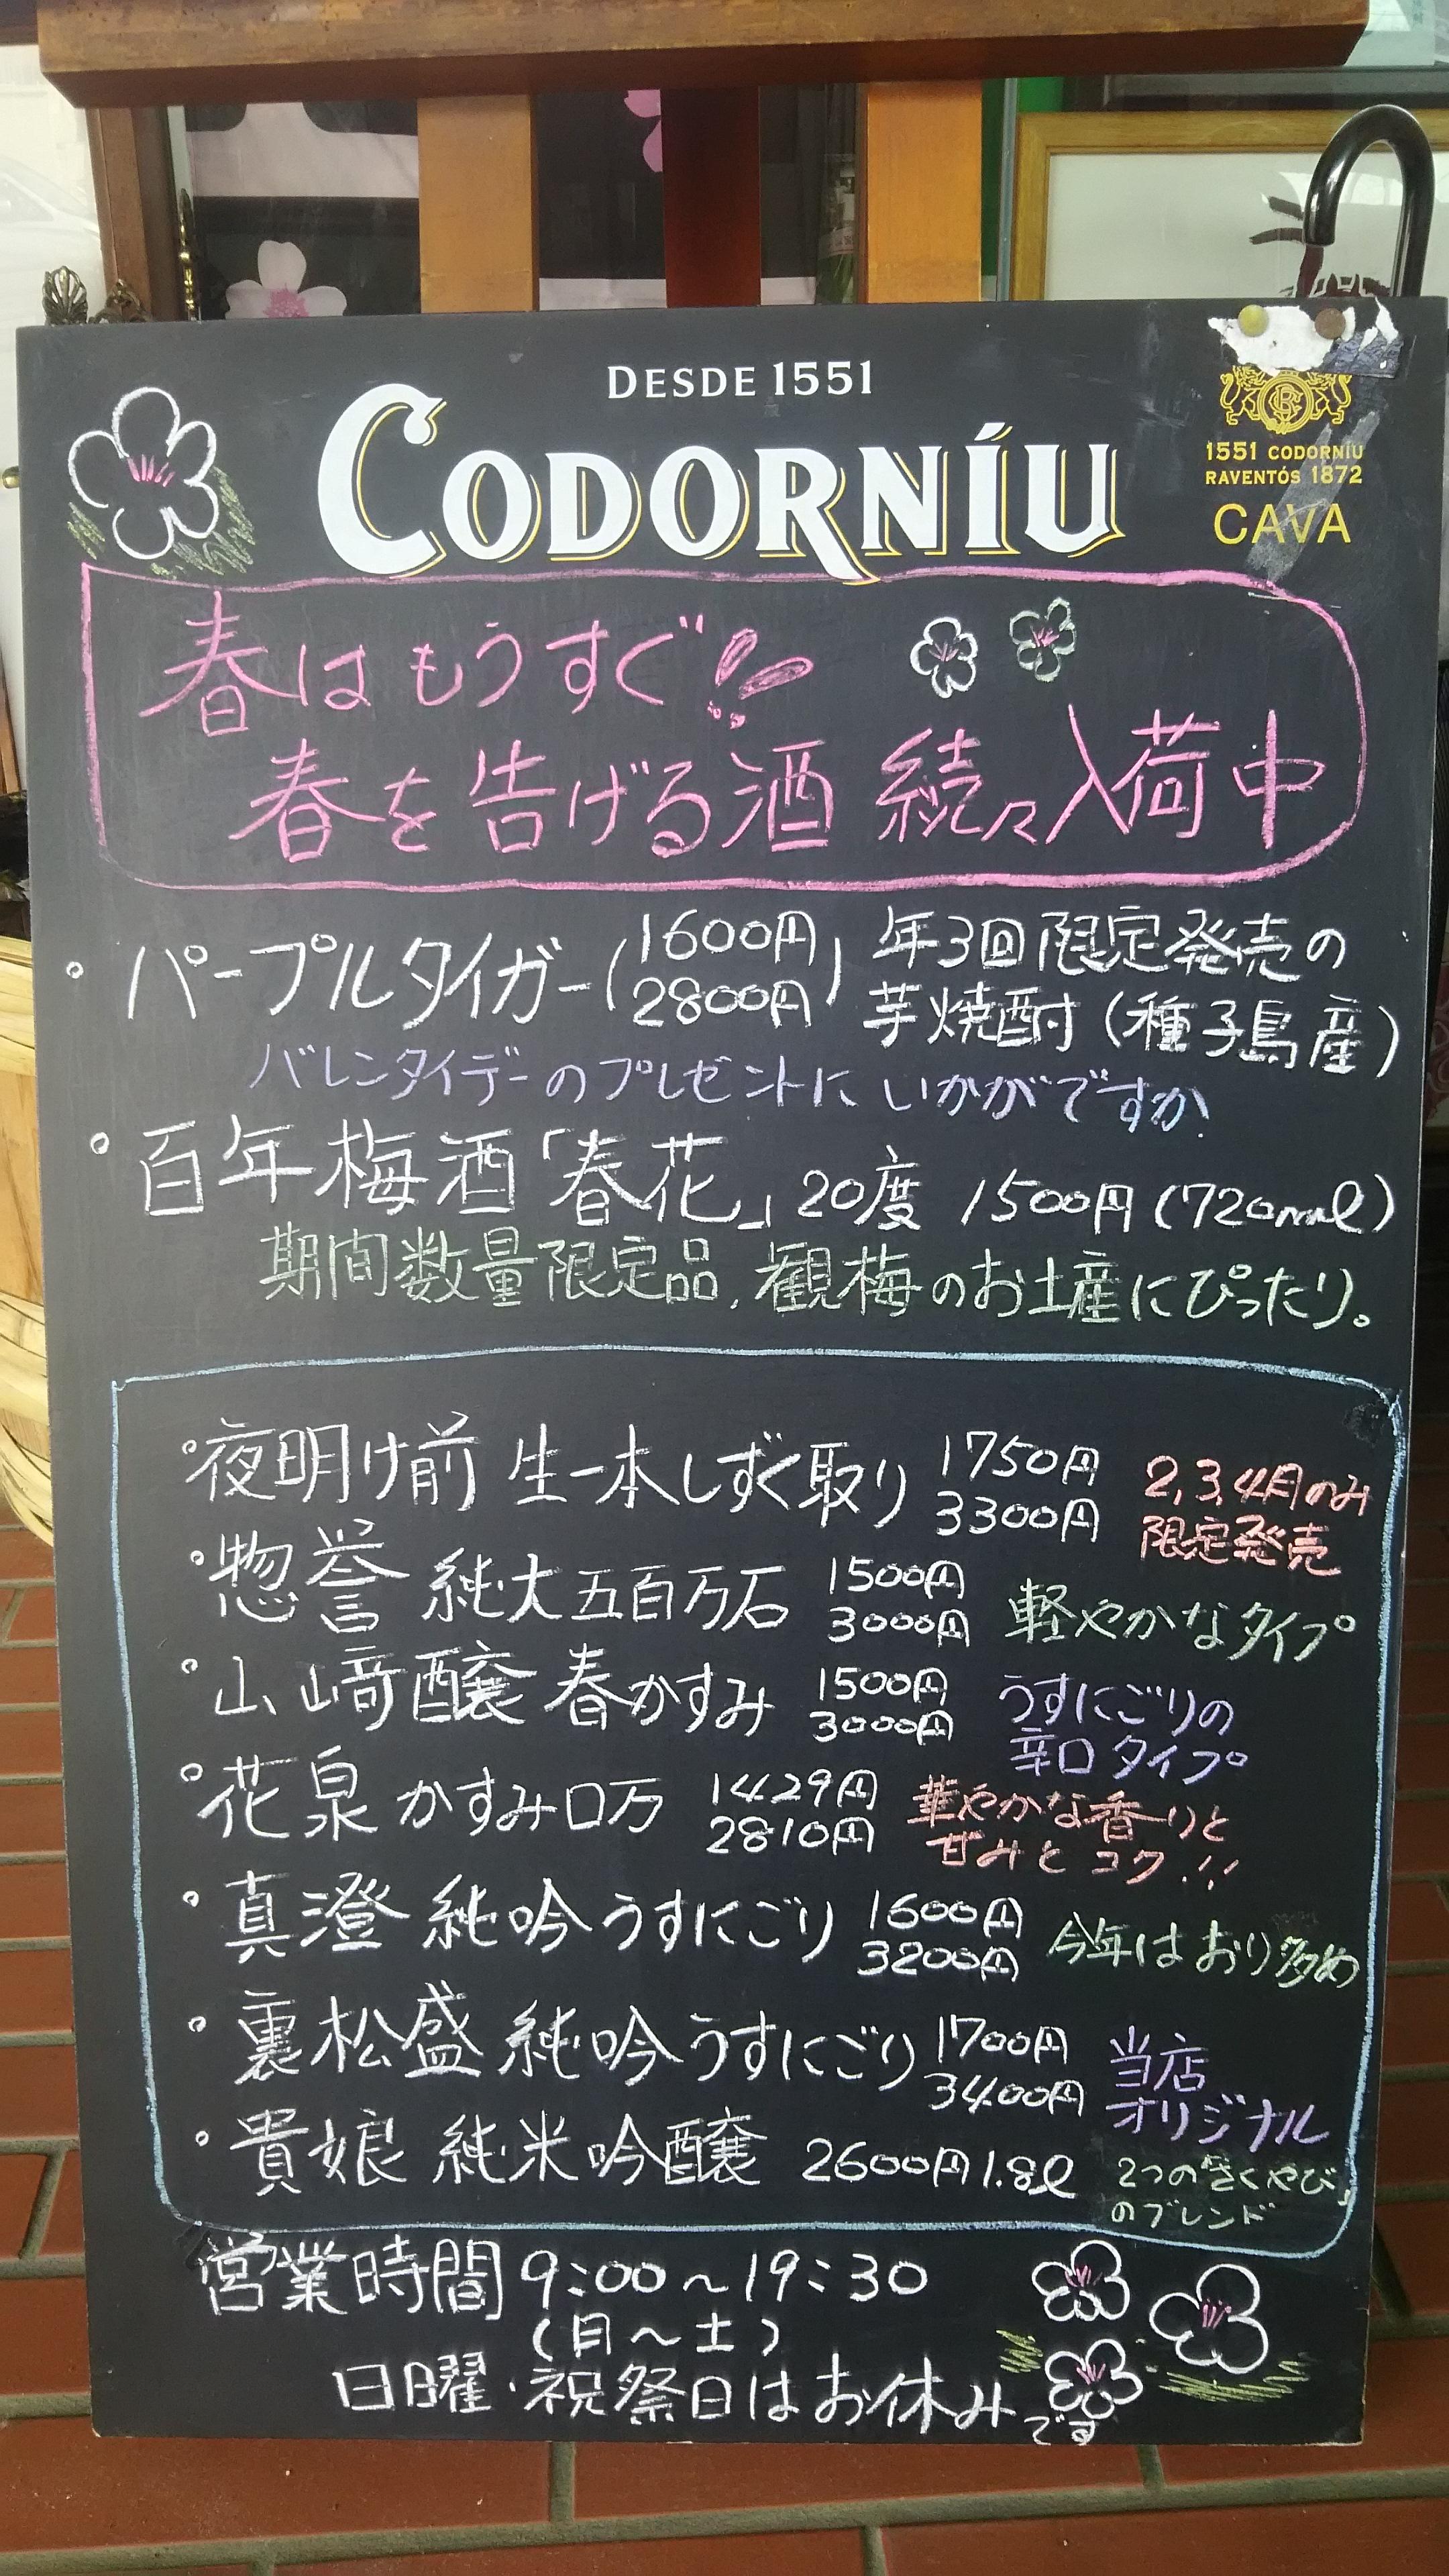 DESDE 1551
CODORNÍU
1551 CODORNÍU
RAVENTÓS 1872
CAVA
春はもうすぐ!!
春を告げる酒 続々入荷中
・パープルタイガー(1600円 2800円) 年3回限定発売の
芋焼酎(種子島産)
バレンタイデーのプレゼントにいかがですか
・百年梅酒「春花」20度 1500円(720ml)
期間数量限定品、観梅のお土産にぴったり。
・夜明け前 生一本しずく取り 1750円 3300円 2,3,4月のみ
限定発売
・惣誉 純大五百万石 1500円 3000円 軽やかなタイプ
・山﨑醸 春かすみ 1500円 3000円 うすにごりの
辛口タイプ
・花泉 かすみロ万 1429円 2810円 華やかな香りと
甘みとコク!!
・真澄 純吟うすにごり 1600円 3200円 今年はおり多め
・裏松盛 純吟うすにごり 1700円 3400円 当店
オリジナル
・貴娘 純米吟醸 2600円 1.8l 2つの
のブレンド
営業時間 9:00〜19:30
(月〜土)
日曜・祝祭日はお休みです